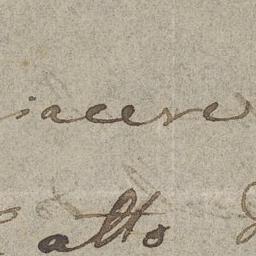 iacere
alto